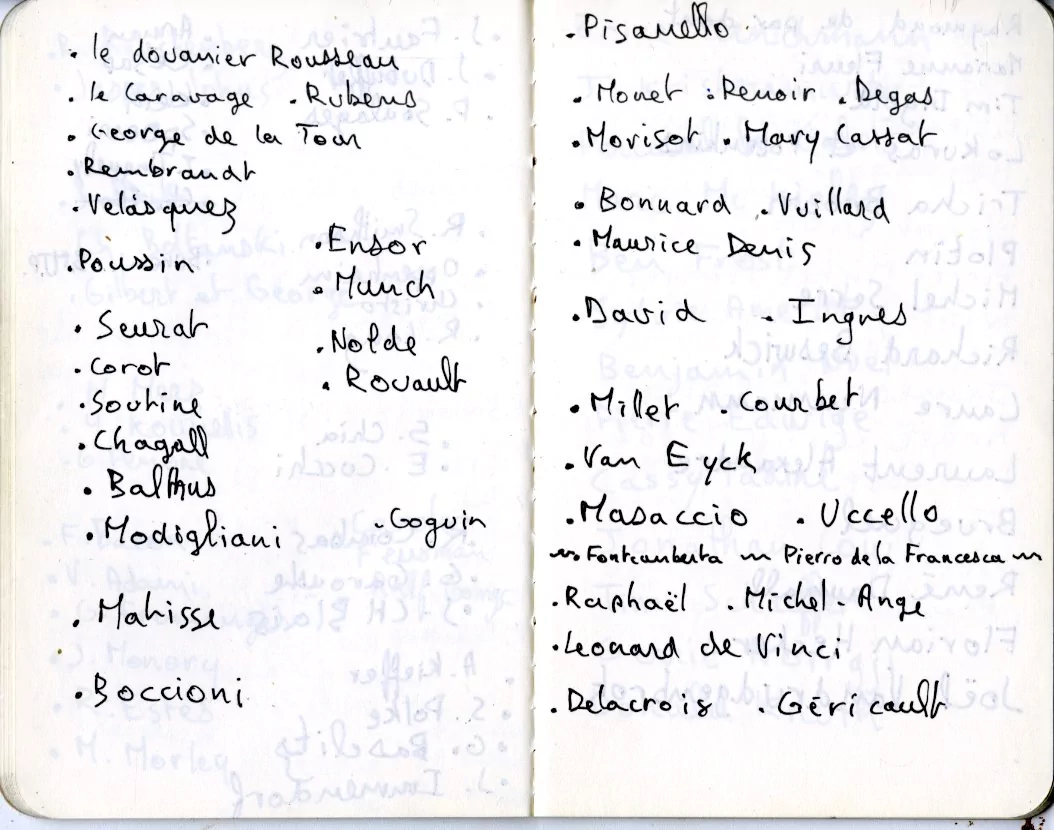 . le douanier Rousseau
. le Caravage . Rubens
. George de la Tour
. Rembrandt
. Velásquez
. Poussin
. Ensor
. Munch
. Seurat
. Nolde
. Corot
. Rouault
. Soutine
. Chagall
. Balthus
. Modigliani . Goguin
. Matisse
. Boccioni
. Pisanello
. Monet . Renoir . Degas
. Morisot . Mary Cassat
. Bonnard . Vuillard
. Maurice Denis
. David . Ingres
. Millet . Courbet
. Van Eyck
. Masaccio . Uccello
~ Fontcuberta ~ Pierro de la Francesca ~
. Raphaël . Michel-Ange
. Leonard de Vinci
. Delacrois . Géricault